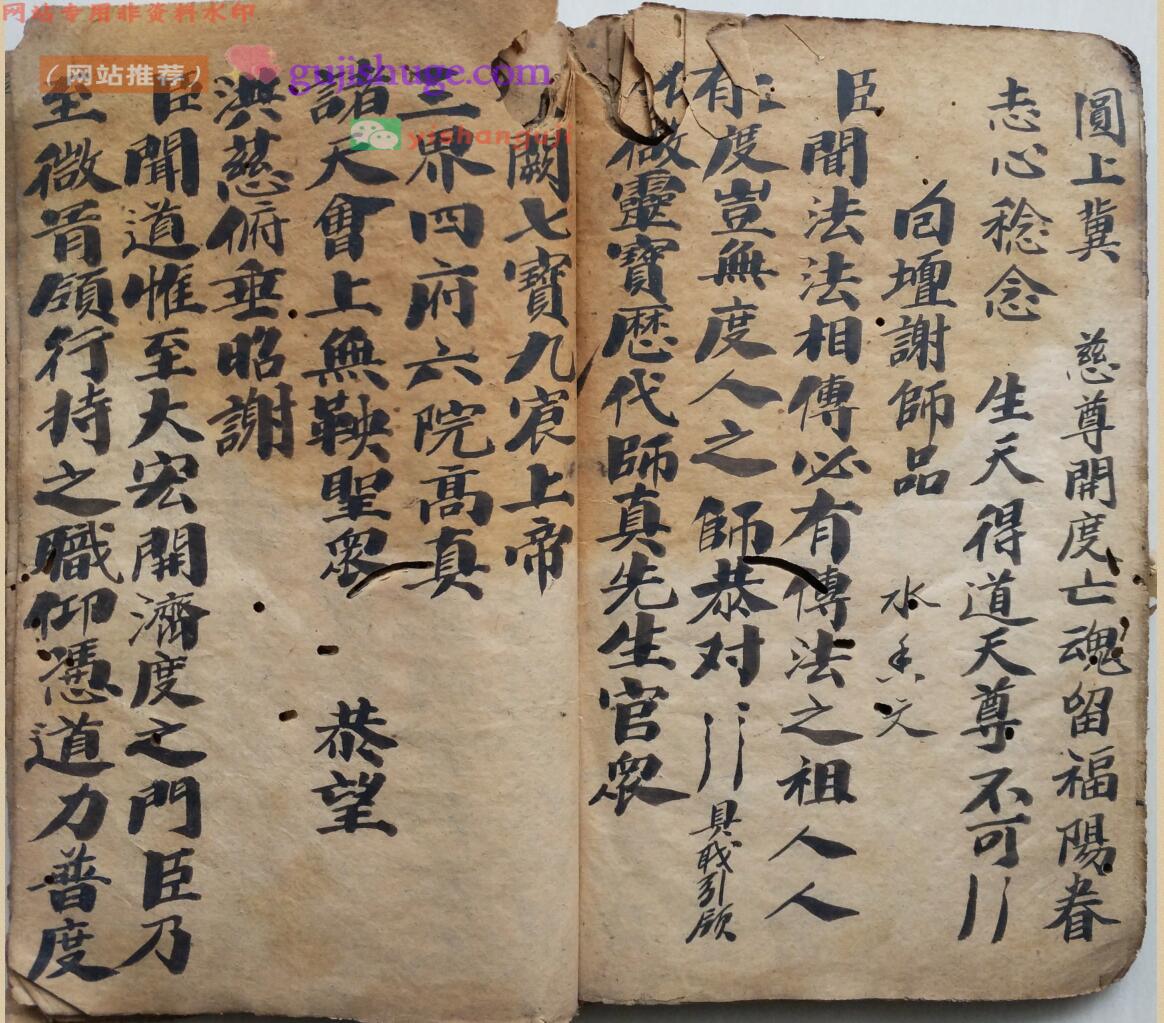 圓上冀 慈尊開度亡魂留福陽眷
志心稔念 生天得道天尊不可〢
白壇謝師品 水香文
臣聞法法相傳必有傳法之祖人人
有度豈無度人之師恭对〢具戝引領
微靈寶歴代師真先生官衆
闕七寶九宸上帝
三界四府六院高真
諸天會上無鞅聖衆 恭望
洪慈俯垂昭謝
臣聞道惟至大宏開濟度之門臣乃
至微胥領行持之職仰憑道力普度
网站专用非资料水印
（网站推荐）
gujishuge.com
yishanguji